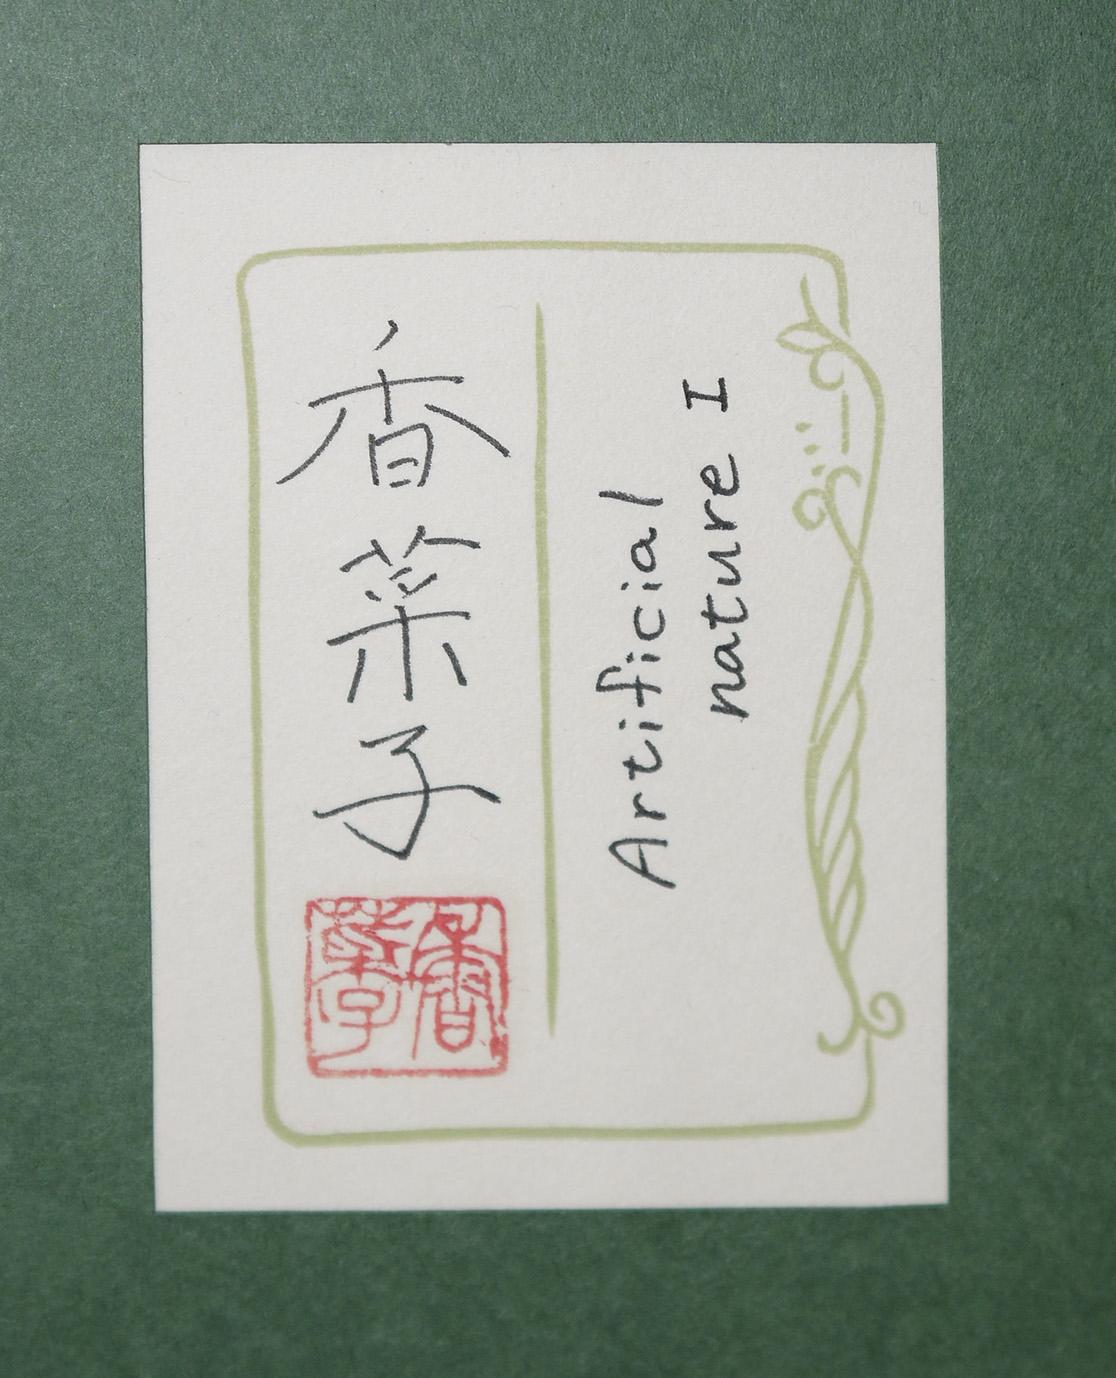 Artificial
nature I
香菜子
香菜子